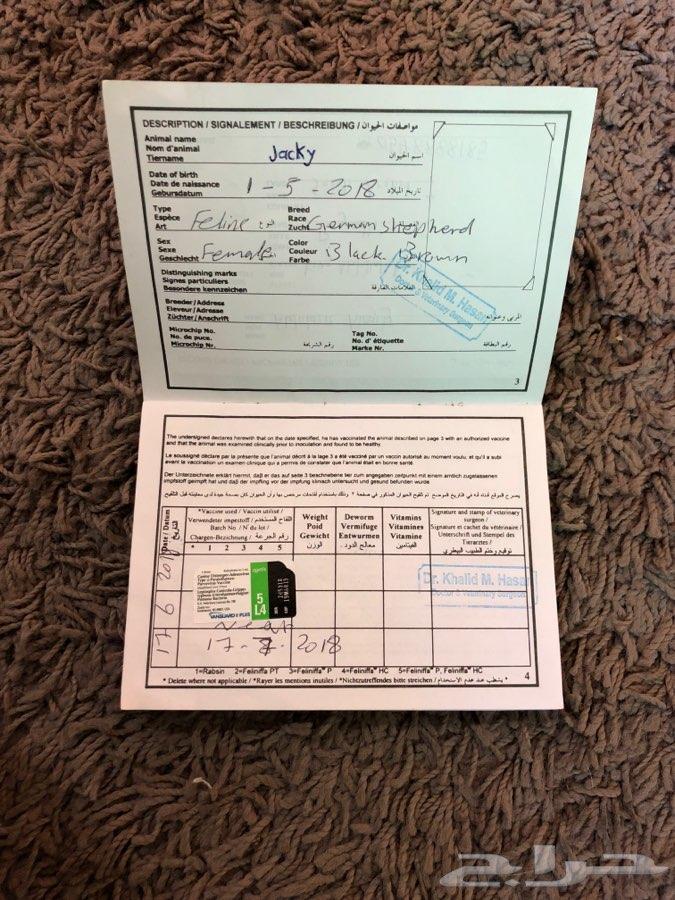 DESCRIPTION / SIGNALEMENT / BESCHREIBUNG / مواصفات الحيوان
Animal name
Nom d'animal
Tiername Jacky اسم الحيوان
Date of birth
Date de naissance
Geburtsdatum 1 - 5 - 2018 تاريخ الميلاد
Type Breed
Espèce Race
Art Feline النوع Zucht German shepherd
Sex Color
Sexe Couleur
Geschlecht Female Farbe Black Brown
Distinguishing marks
Signes particuliers
Besondere kennzeichen العلامات الفارقة
Dr. Khalid M. Hasan
Doctor & Veterinary Surgeon
Breeder/Address
Eleveur/Adresse
Züchter/Anschrift المربي وعنوانه
Microchip No. Tag No.
No. de puce. No. d' étiquette
Microchip Nr. رقم الشريحة Marke Nr. رقم البطاقة
3
The undersigned declares herewith that on the date specified, he has vaccinated the animal described on page 3 with an authorized vaccine
and that the animal was examined clinically prior to inoculation and found to be healthy.
Le soussigné déclare par la présente que l'animal décrit à la page 3 a été vacciné par un vaccin autorisé au moment voulu, et qu'il a subi
avant la vaccination un examen clinique qui a permis de constater que l'animal était en bonne santé.
Der Unterzeichnete erklärt hiermit, daß er das auf seite 3 beschriebene tier zum angegeben zeitpunkt mit einem amtlich zugelassenen
impfstoff geimpft hat und daß der impfling vor der impfung klinisch untersucht und gesund befunden wurde
Date / Datum
التاريخ
*Vaccine used / Vaccin utilisé /
Verwendeter impfstoff / اللقاح المستخدم
Batch No / N du lot /
Chargen-Bezeichnung / رقم الجرعة
* 1 2 3 4 5
Weight
Poid
Gewicht
الوزن
Deworm
Vermifuge
Entwurmen
معالج الدود
Vitamins
Vitamines
Vitamine
الفيتامين
Signature and stamp of veterinary
surgeon /
Signature et cachet du vétérinaire /
Unterschrift und Stempel des
Tierarztes /
توقيع وختم الطبيب البيطري
17 6 2018
zoetis
5
L4
VANGUARD PLUS
Dr. Khalid M. Hasan
Doctor & Veterinary Surgeon
17 - 7 - 2018
1=Rabsin 2=Feliniffa PT 3=Feliniffa P 4=Feliniffa HC 5=Feliniffa P, Feliniffa HC
* Delete where not applicable / *Rayer les mentions inutiles / *Nichtzutreffendes bitte streichen / * يشطب عند عدم الاستخدام
4
حراج